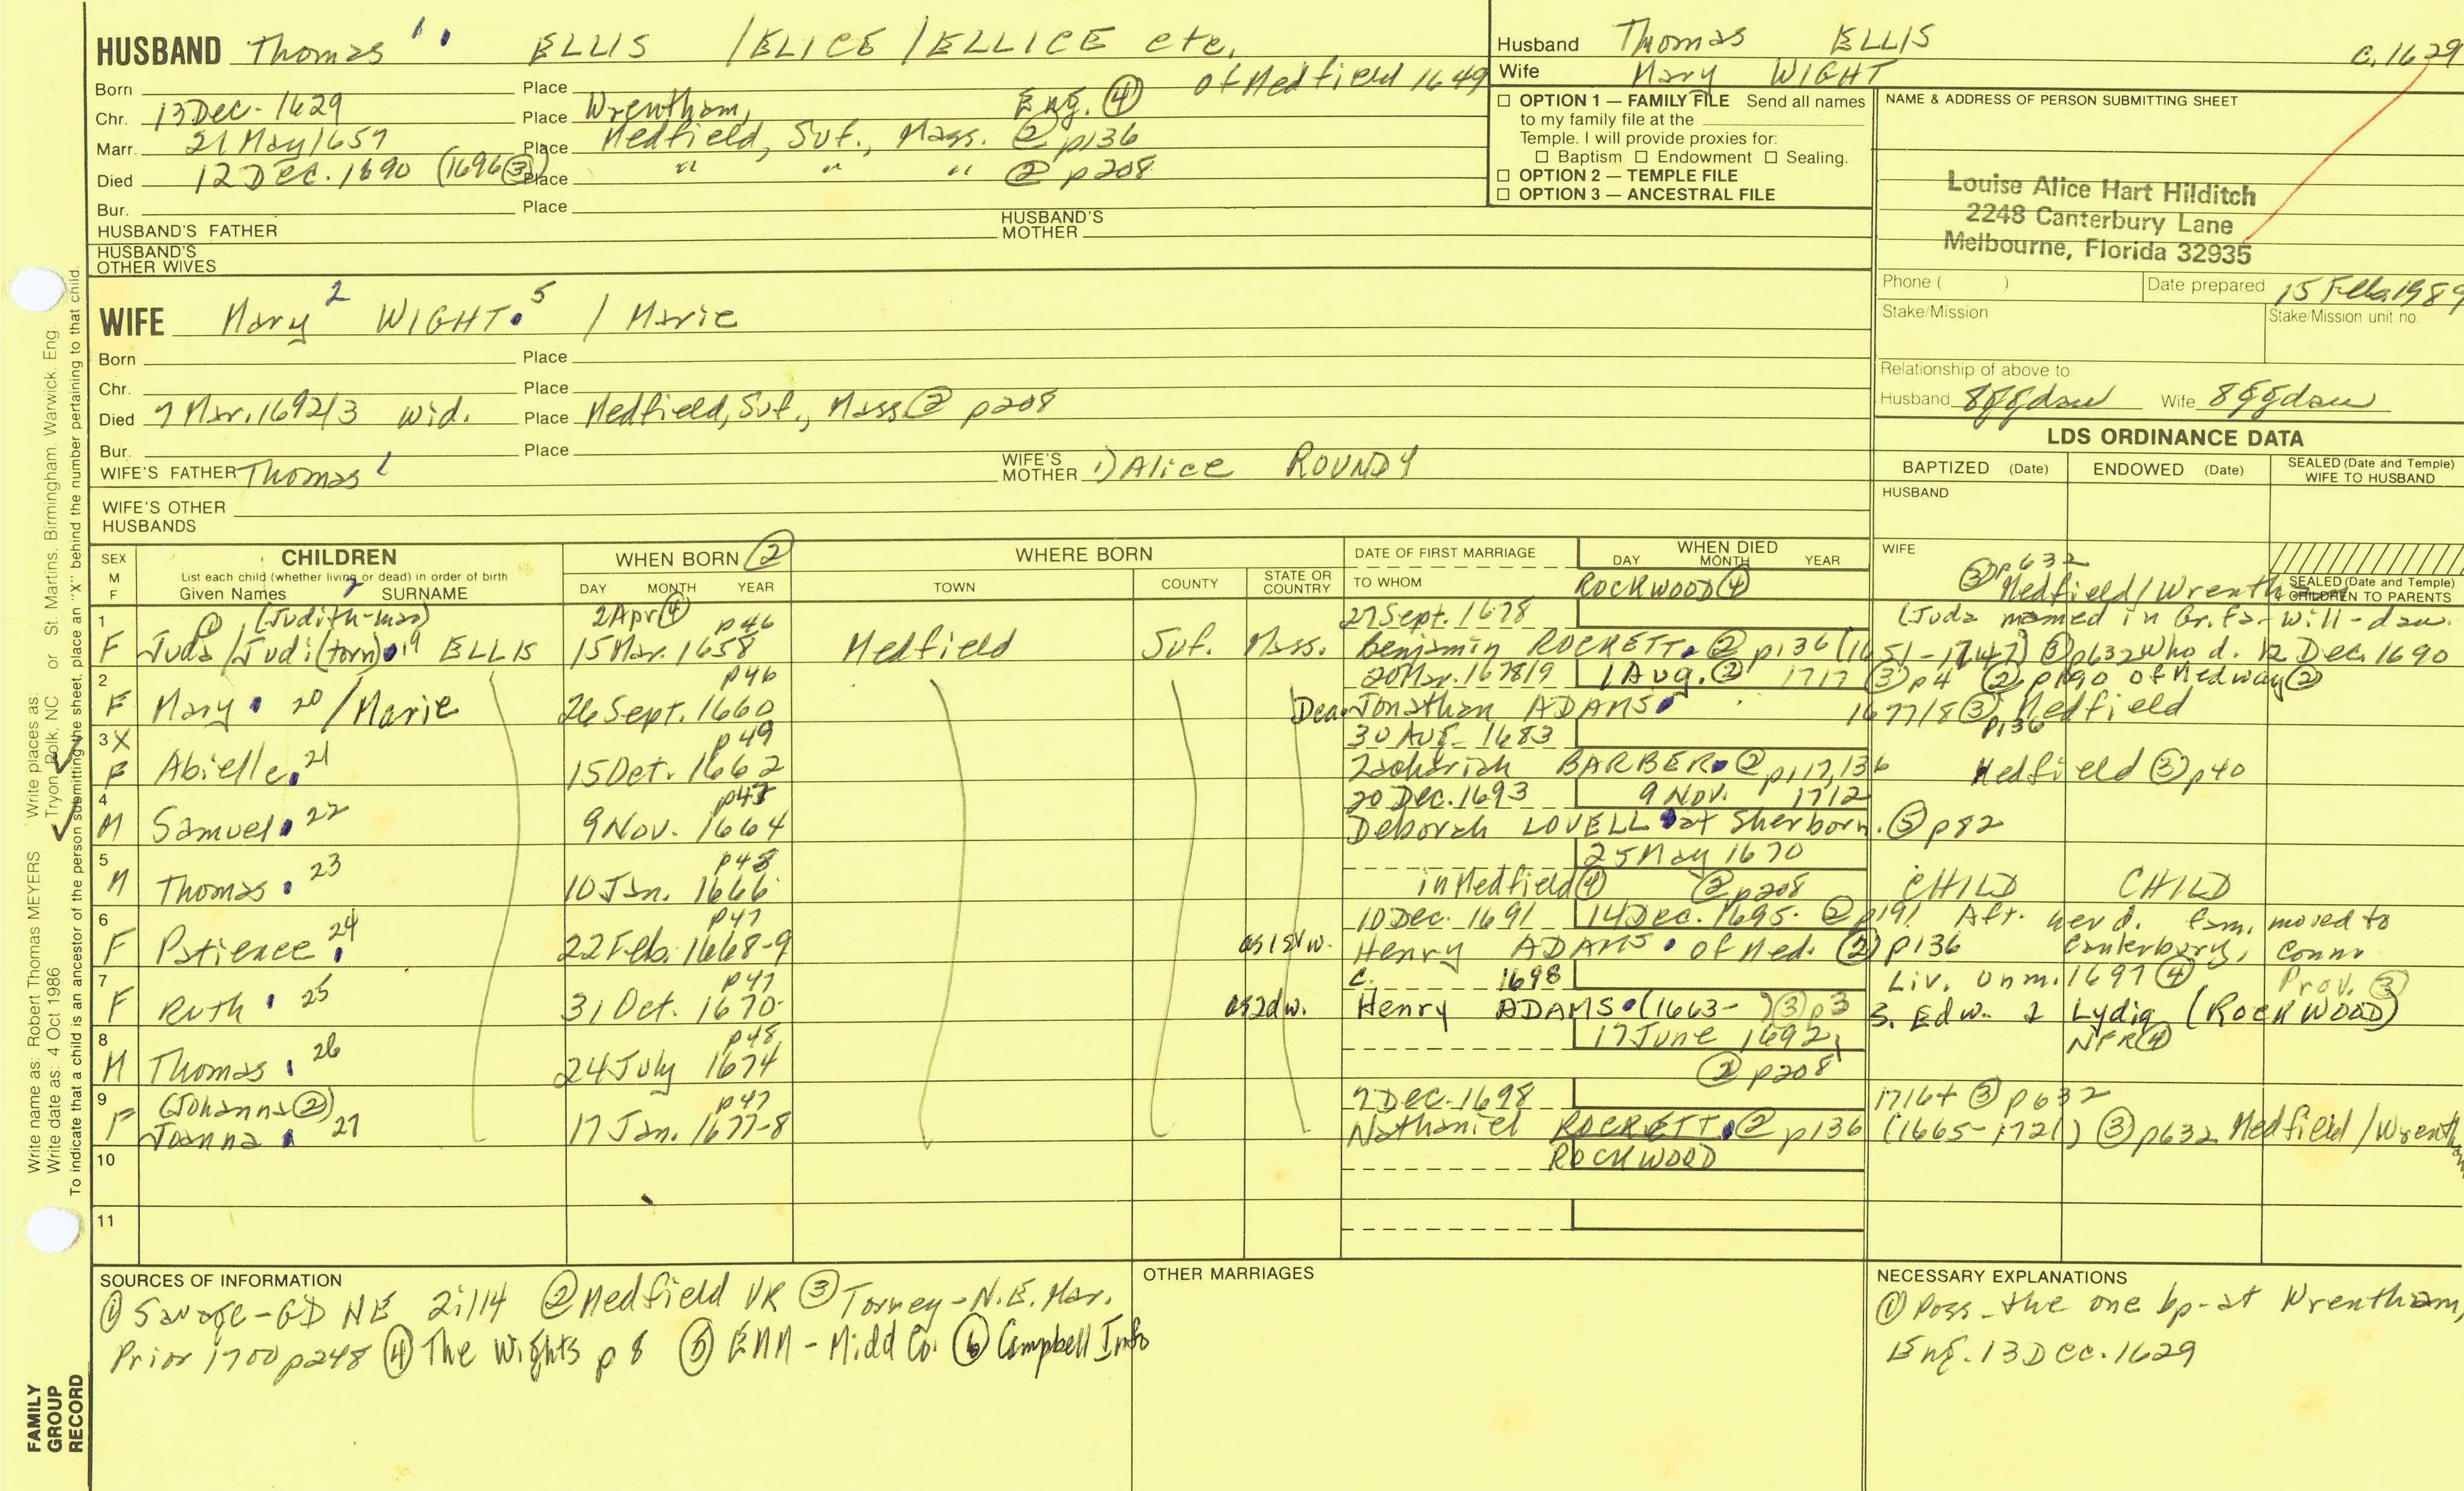 HUSBAND Thomas 1 ELLIS /ELICE /ELLICE etc.
of Medfield 1649
Born Place
Chr. 13 Dec. 1629 Place Wrentham, Eng. ④
Marr. 21 May 1657 Place Medfield, Suf., Mass. ② p136
Died 12 Dec. 1690 (1696 ③) Place " " " ② p208
Bur. Place
HUSBAND'S FATHER HUSBAND'S MOTHER
HUSBAND'S OTHER WIVES
Husband Thomas ELLIS
Wife Mary WIGHT
c. 1629
☐ OPTION 1 — FAMILY FILE Send all names
to my family file at the
Temple. I will provide proxies for:
☐ Baptism ☐ Endowment ☐ Sealing.
☐ OPTION 2 — TEMPLE FILE
☐ OPTION 3 — ANCESTRAL FILE
NAME & ADDRESS OF PERSON SUBMITTING SHEET
Louise Alice Hart Hilditch
2248 Canterbury Lane
Melbourne, Florida 32935
Phone ( ) Date prepared 15 Feb. 1989
Stake/Mission Stake/Mission unit no.
Relationship of above to
Husband 8ggdau Wife 8ggdau
WIFE Mary 2 WIGHT. 5 / Marie
Born Place
Chr. Place
Died 7 Mar. 1692/3 wid. Place Medfield, Suf., Mass ② p208
Bur. Place
WIFE'S FATHER Thomas 1 WIFE'S MOTHER 1) Alice ROUNDY
WIFE'S OTHER HUSBANDS
LDS ORDINANCE DATA
BAPTIZED (Date) ENDOWED (Date) SEALED (Date and Temple) WIFE TO HUSBAND
HUSBAND
WIFE
SEALED (Date and Temple) CHILDREN TO PARENTS
SEX M F
CHILDREN
List each child (whether living or dead) in order of birth
Given Names SURNAME
WHEN BORN ②
DAY MONTH YEAR
WHERE BORN
TOWN COUNTY STATE OR COUNTRY
DATE OF FIRST MARRIAGE
TO WHOM
WHEN DIED
DAY MONTH YEAR
ROCKWOOD ④
③ p632
Medfield/Wrentham
1 ① (Judith-mar) 2 Apr ④ p46 27 Sept. 1678 (Juda named in Gr. fa. will - dau.
F Juda/Judi(torn) 19 ELLIS 15 Mar. 1658 Medfield Suf. Mass. Benjamin ROCKETT. ② p136 (1651-1747) ③ p632 who d. 12 Dec. 1690
2 p46 20 Mar. 1678/9 1 Aug. ② 1717 ③ p4 ② p190 of Medway ②
F Mary. 20 /Marie 26 Sept. 1660 Dea. Jonathan ADAMS 1677/8 ③ Medfield
p136
3 X p49 30 Aug. 1683
F Abielle. 21 15 Oct. 1662 Zachariah BARBER ② p117, 136 Medfield ③ p40
4 20 Dec. 1693 9 Nov. 1712
M Samuel. 22 9 Nov. 1664 Deborah LOVELL at Sherborn. ⑤ p82
5 p48 25 May 1670
M Thomas. 23 10 Jan. 1666 in Medfield ④ ② p208 CHILD CHILD
6 p47 10 Dec. 1691 14 Dec. 1695. ② p191 Aft. her d. fam. moved to
F Patience. 24 22 Feb. 1668-9 as 1st w. Henry ADAMS. of Med. ② p136 Canterbury, Conn.
7 p47 c. 1698 Liv. unm. 1697 ④ Prov. ③
F Ruth. 25 31 Oct. 1670 as 2d w. Henry ADAMS. (1663- ) ③ p3 s. Edw. & Lydia (ROCKWOOD)
8 p48 17 June 1692, NFR ④
M Thomas. 26 24 July 1674 ② p208
9 (Johanna ②) p47 7 Dec. 1698 1716+ ③ p632
F Joanna. 27 17 Jan. 1677-8 Nathaniel ROCKETT. ② p136 (1665-1721) ③ p632 Medfield/Wrentham
10 ROCKWOOD
11
SOURCES OF INFORMATION
① Savage - GD NE 2:114 ② Medfield VR ③ Torrey - N.E. Mar.
Prior 1700 p248 ④ The Wights p 8 ⑤ EMM - Midd Co. ⑥ Campbell Info
OTHER MARRIAGES
NECESSARY EXPLANATIONS
① Poss. the one bp. at Wrentham,
Eng. 13 Dec. 1629
Write name as: Robert Thomas MEYERS Write places as: Tryon, Polk, NC or St. Martins, Birmingham, Warwick, Eng
Write date as: 4 Oct 1986
To indicate that a child is an ancestor of the person submitting the sheet, place an "X" behind the number pertaining to that child.
FAMILY
GROUP
RECORD